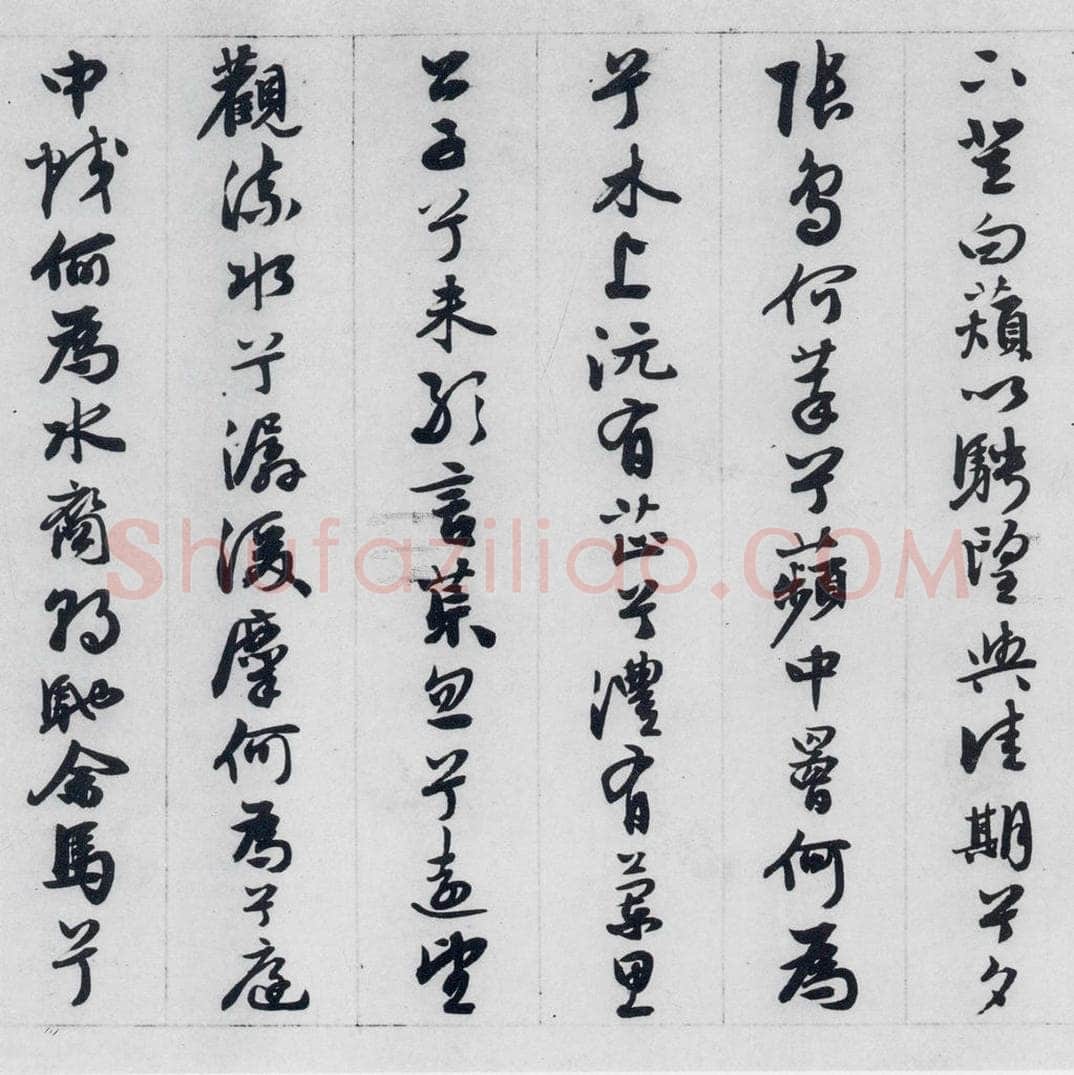 下登白薠以騁望與佳期兮夕
張鳥何萃兮蘋中罾何為
兮木上沅有芷兮澧有蘭思
公子兮未敢言荒忽兮遠望
觀流水兮潺湲麋何為兮庭
中蛟何為水裔朝馳余馬兮
Shufaziliao.COM